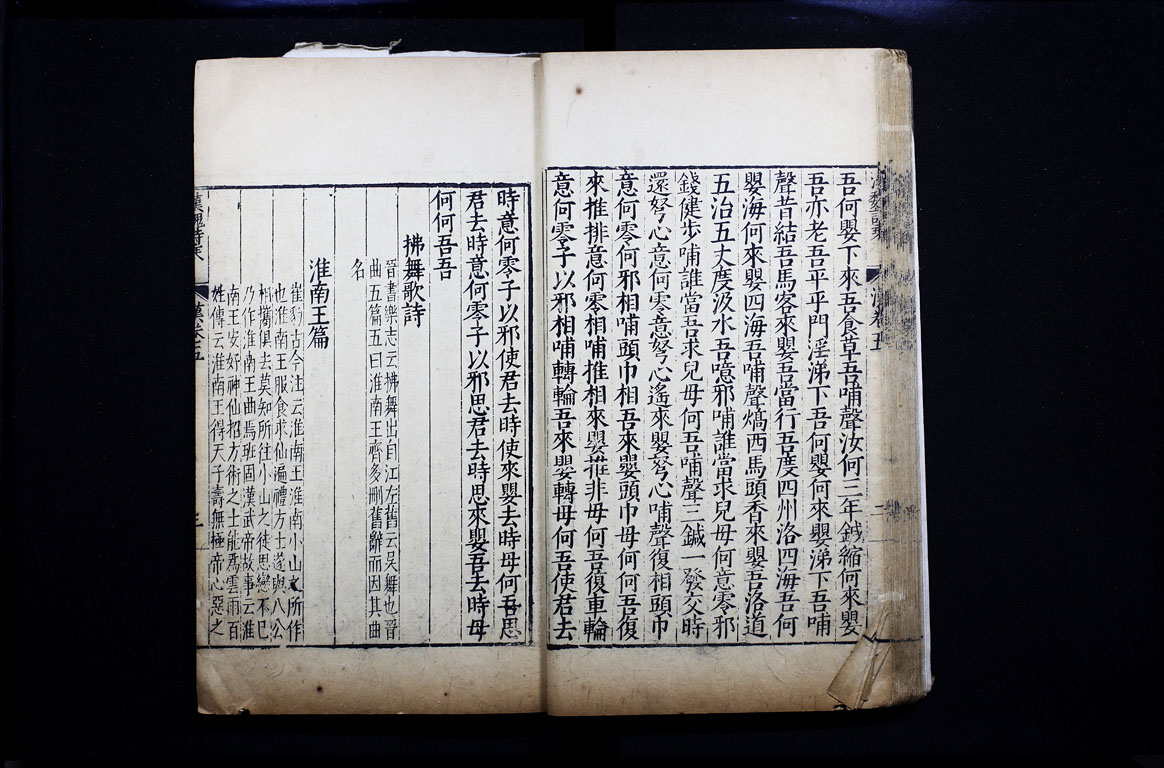 吾何嬰下來吾食草吾哺聲汝何三年鍼縮何來嬰
吾亦老吾平平門淫涕下吾何嬰何來嬰涕下吾哺
聲昔結吾馬客來嬰吾當行吾度四州洛四海吾何
嬰海何來嬰四海吾哺聲熇西馬頭香來嬰吾洛道
五治五丈度汲水吾噫邪哺誰當求兒母何意零邪
錢健步哺誰當吾求兒母何吾哺聲三鍼一發交時
還弩心意何零意弩心遙來嬰弩心哺聲復相頭巾
意何零何邪相哺頭巾相吾來嬰頭巾母何何吾復
來推排意何零相哺推相來嬰推非母何吾復車輪
意何零子以邪相哺轉輪吾來嬰轉母何吾使君去
時意何零子以邪使君去時使來嬰去時母何吾思
君去時意何零子以邪思君去時思來嬰吾去時母
何何吾吾
拂舞歌詩
晉書樂志云拂舞出自江左舊云吳舞也晉
曲五篇五曰淮南王齊多刪舊辭而因其曲
名
淮南王篇
崔豹古今注云淮南王淮南小山之所作
也淮南王服食求仙遍禮方士遂與八公
相攜俱去莫知所往小山之徒思戀不已
乃作淮南王曲焉班固漢武帝故事云淮
南王安好神仙招方術之士能為雲雨百
姓傳云淮南王得天子壽無極帝心惡之
漢魏詩乘 漢卷五 三